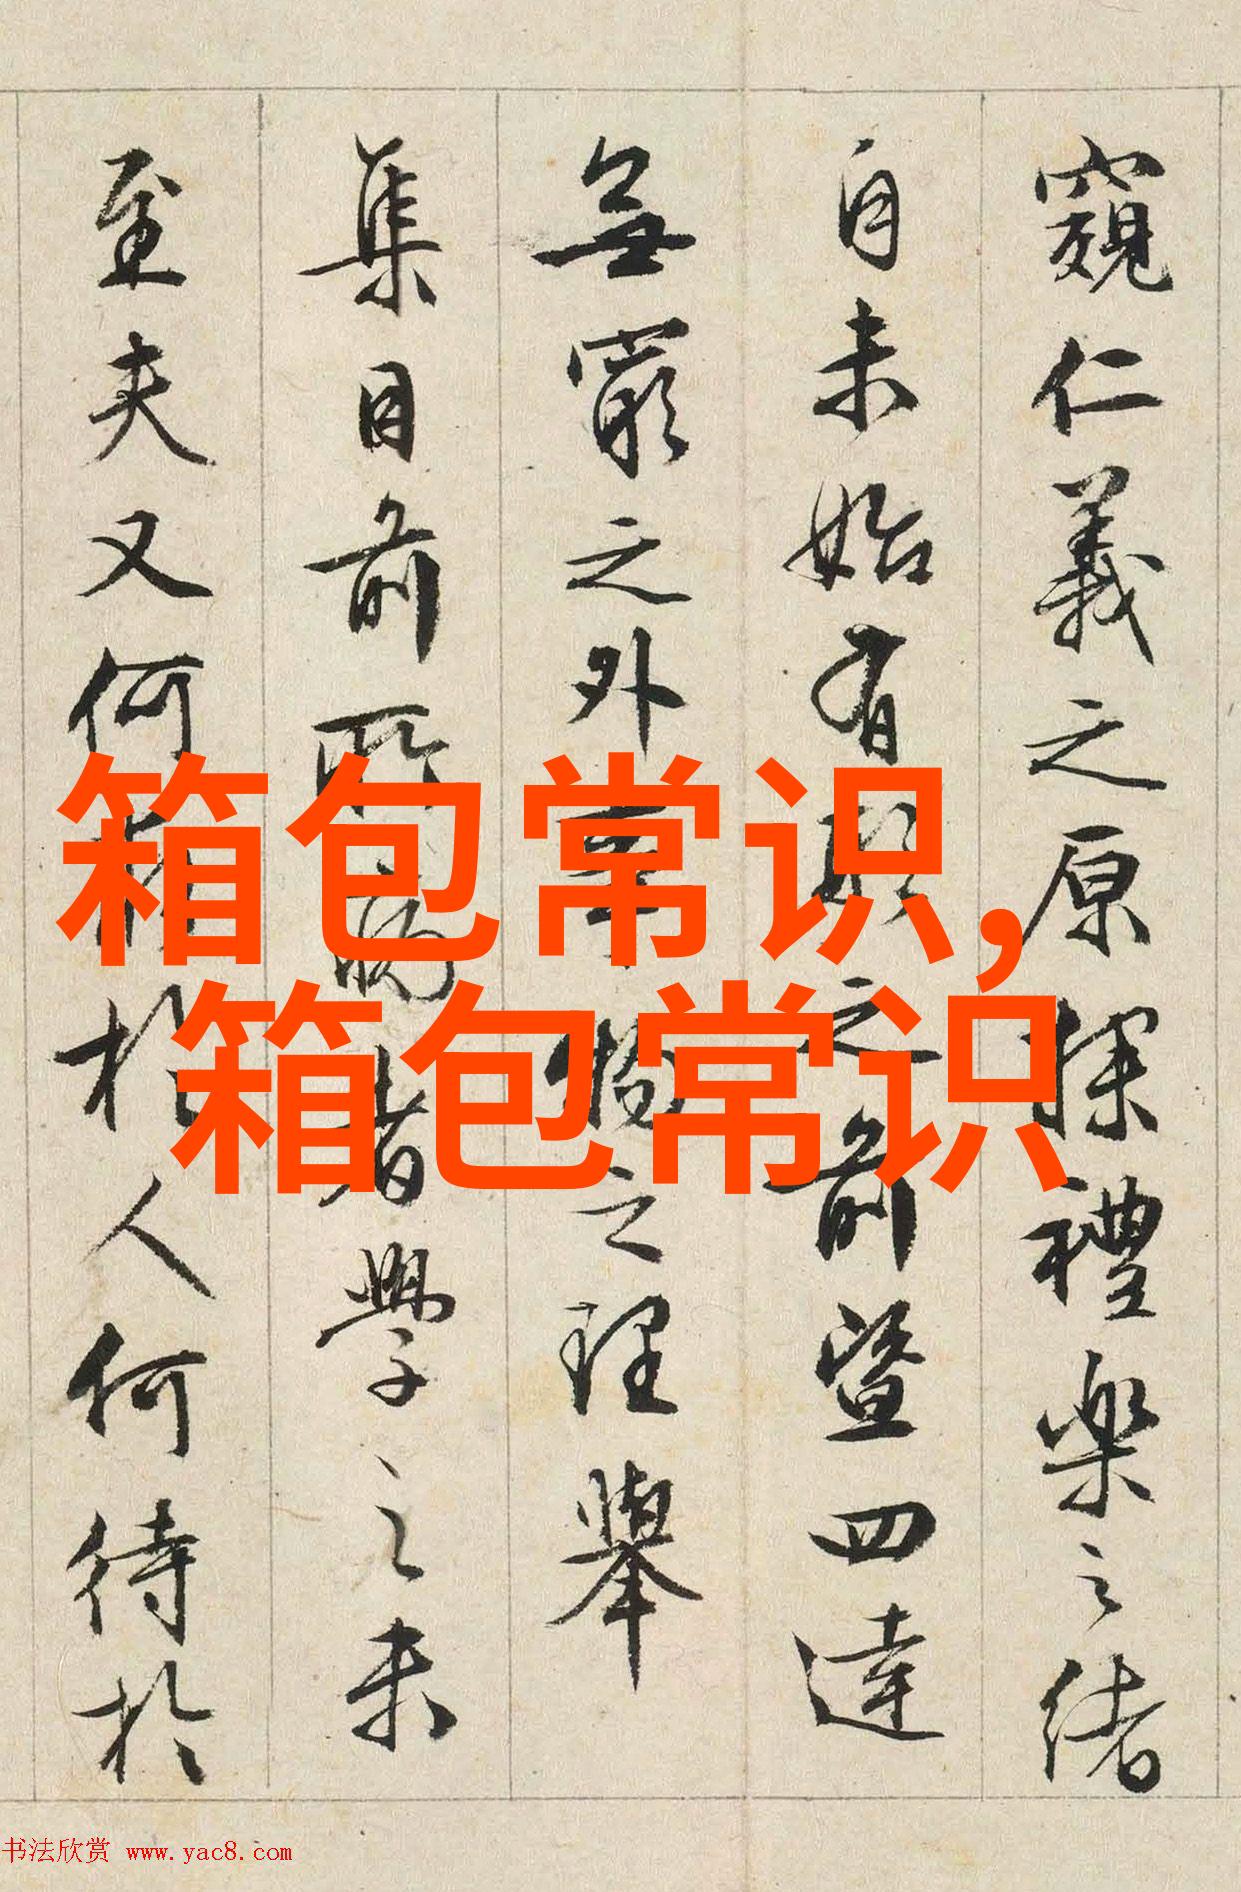 窺仁義之原探禮樂之緒
自未始有形之前暨四達
無窮之外事物之理舉
集目前所病者學之未
至夫又何求於人何待於
箱包常识,
箱包常识
书法欣赏 www.yac8.com